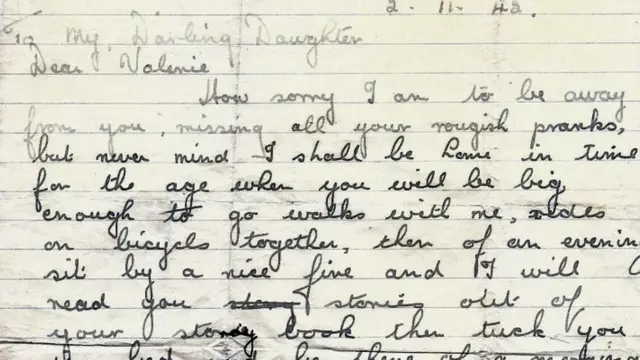 2 . 11 . 42.
To My Darling Daughter
Dear Valerie
How sorry I am to be away
from you, missing all your rougish pranks,
but never mind I shall be home in time
for the age when you will be big
enough to go walks with me, rides
on bicycls together, then of an evening
sit by a nice fire and I will
read you story stories out of
your story book then tuck you